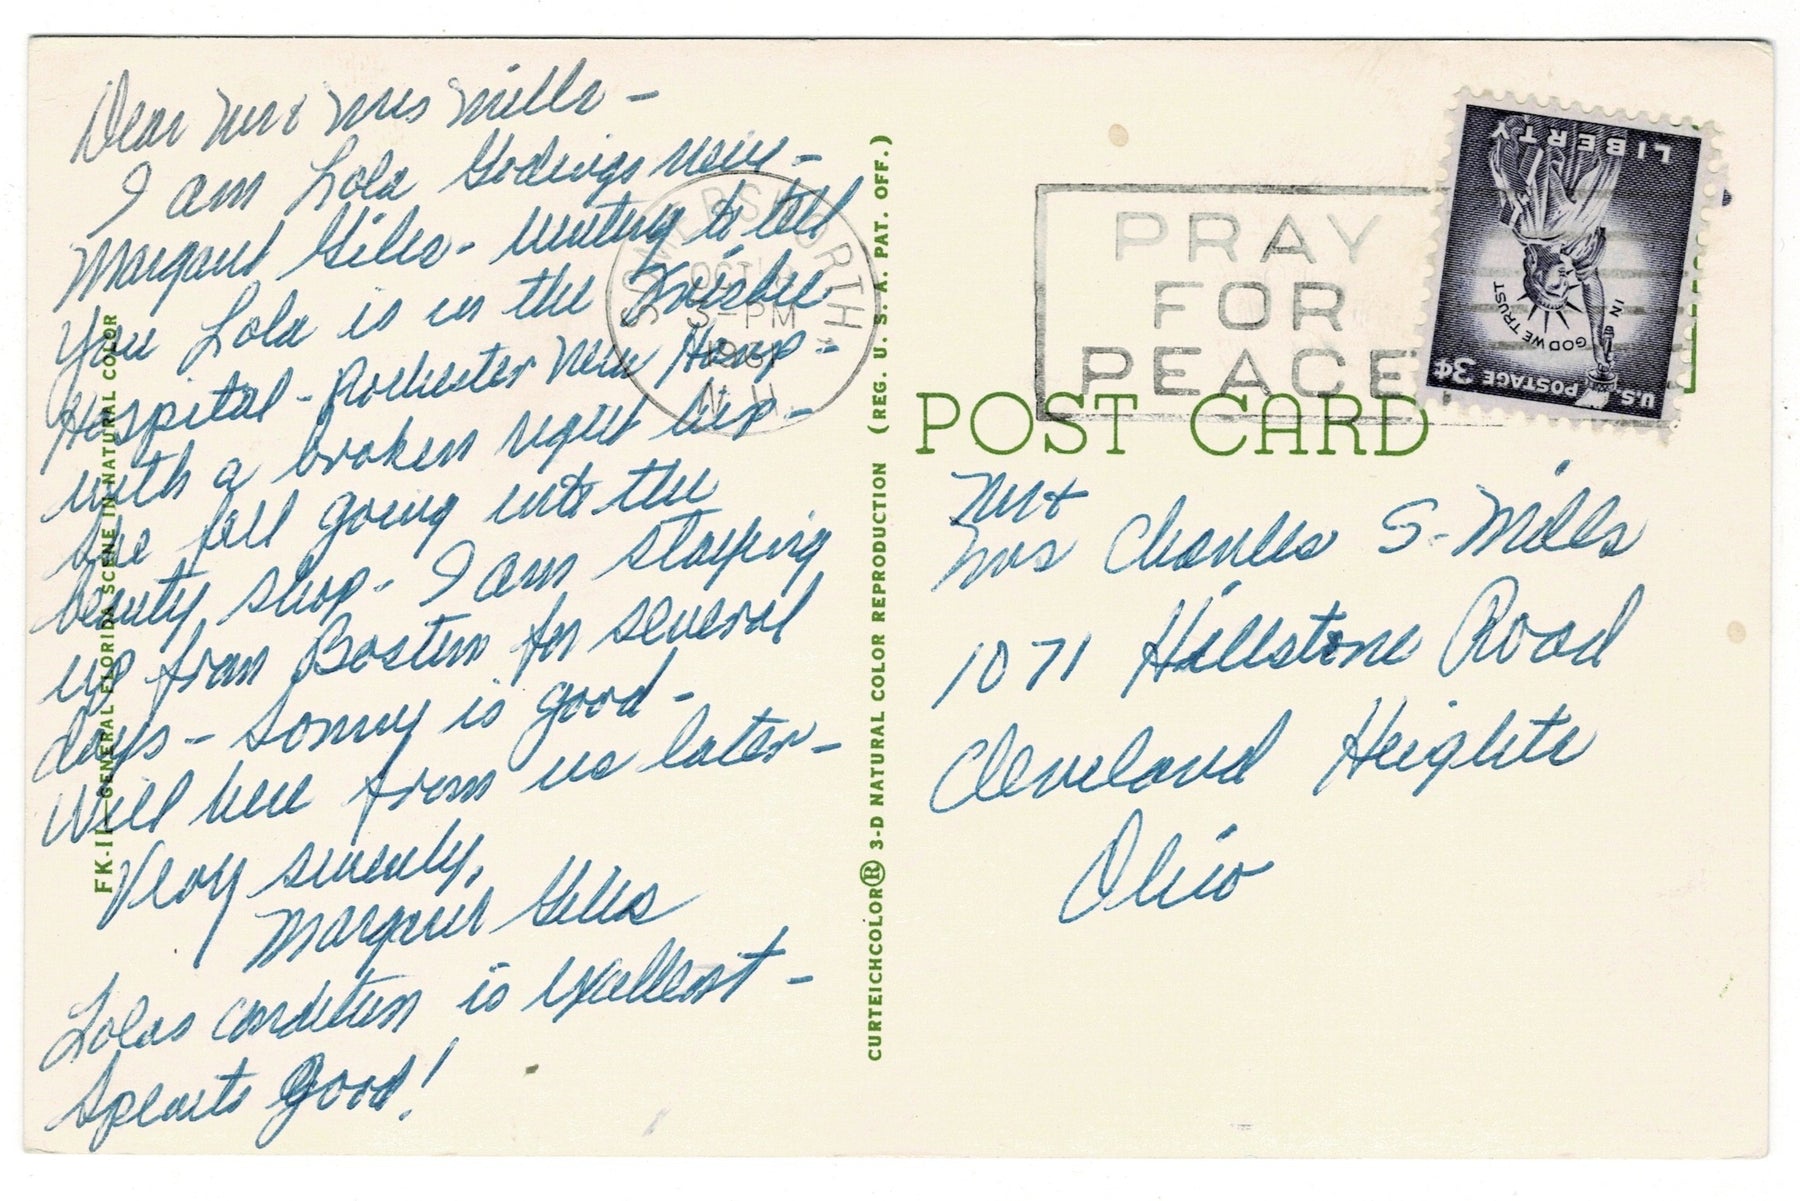 Dear Mr & Mrs Mills -
I am Lola Godings
Margaret Giles - writing to tell
you Lola is in the Frisbee
Hospital - Rochester New Hamp -
with a broken right hip -
She fell going into the
beauty shop - I am staying
up from Boston for several
days - Sonny is good -
Will here from us later -
Very sincerely,
Margaret Giles
Lolas condition is excellent -
Spearts Good!
FK-11-GENERAL FLORIDA SCENE IN NATURAL COLOR
SOMERSWORTH
OCT
3-PM
N.H.
CURTEICHCOLOR® 3-D NATURAL COLOR REPRODUCTION (REG. U. S. A. PAT. OFF.)
PRAY
FOR
PEACE
LIBERTY
IN GOD WE TRUST
U.S. POSTAGE 3¢
POST CARD
Mr &
Mrs Charles S. Mills
1071 Hillstone Road
Cleveland Heights
Ohio